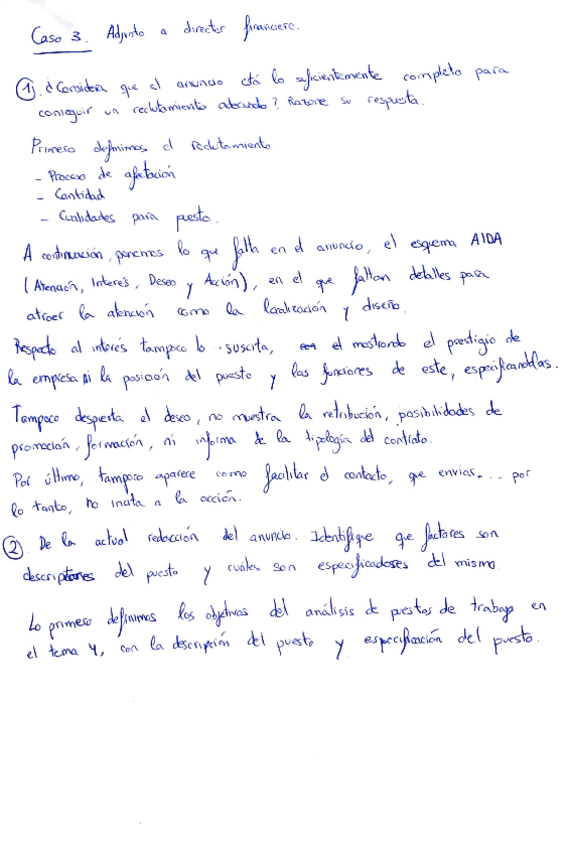 Caso 3. Adjunto a director financiero.
1. ¿Considera que el anuncio está lo suficientemente completo para
conseguir un reclutamiento adecuado? Razone su respuesta.
Primero definimos el reclutamiento
- Proceso de afectación
- Cantidad
- Cualidades para puesto.
A continuación, ponemos lo que falta en el anuncio, el esquema AIDA
(Atención, Interés, Deseo y Acción), en el que faltan detalles para
atraer la atención como la localización y diseño.
Respecto al interés tampoco lo suscita, el mostrando el prestigio de
la empresa ni la posición del puesto y las funciones de este, especificandolas.
Tampoco despierta el deseo, no muestra la retribución, posibilidades de
promoción, formación, ni informa de la tipología del contrato.
Por último, tampoco aparece como facilitar el contacto, que envias... por
lo tanto, no incita a la acción.
2. De la actual redacción del anuncio. Identifique que factores son
descriptores del puesto y cuáles son especificadores del mismo
Lo primero definimos los objetivos del análisis de puestos de trabajo en
el tema 4, con la descripción del puesto y especificación del puesto.